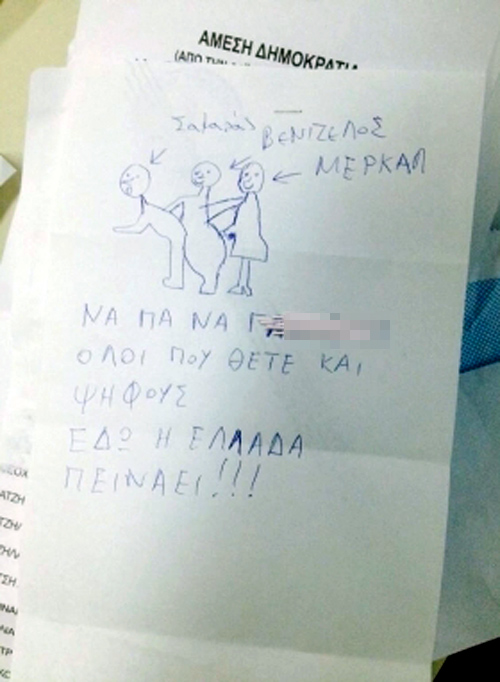 ΑΜΕΣΗ ΔΗΜΟΚΡΑΤΙΑ
(ΑΠΟ ΤΗΝ
Σαμαράς ΒΕΝΙΖΕΛΟΣ
ΜΕΡΚΕΛ
ΝΑ ΠΑ ΝΑ
ΟΛΟΙ ΠΟΥ ΘΕΤΕ ΚΑΙ
ΨΗΦΟΥΣ
ΕΔΩ Η ΕΛΛΑΔΑ
ΠΕΙΝΑΕΙ!!!